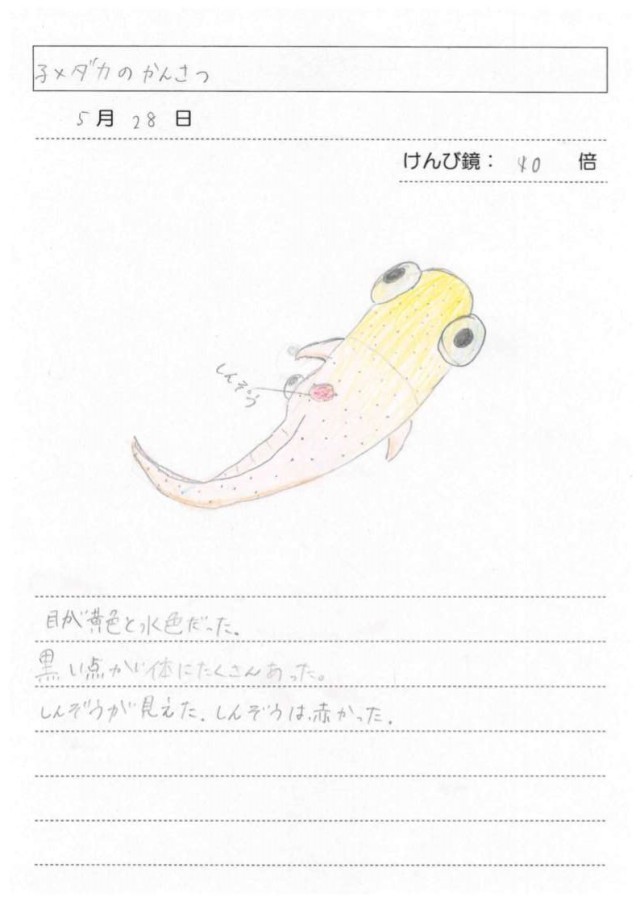 子メダカのかんさつ
5月28日
けんび鏡： 40 倍
しんぞう
目が黄色と水色だった。
黒い点が体にたくさんあった。
しんぞうが見えた。しんぞうは赤かった。